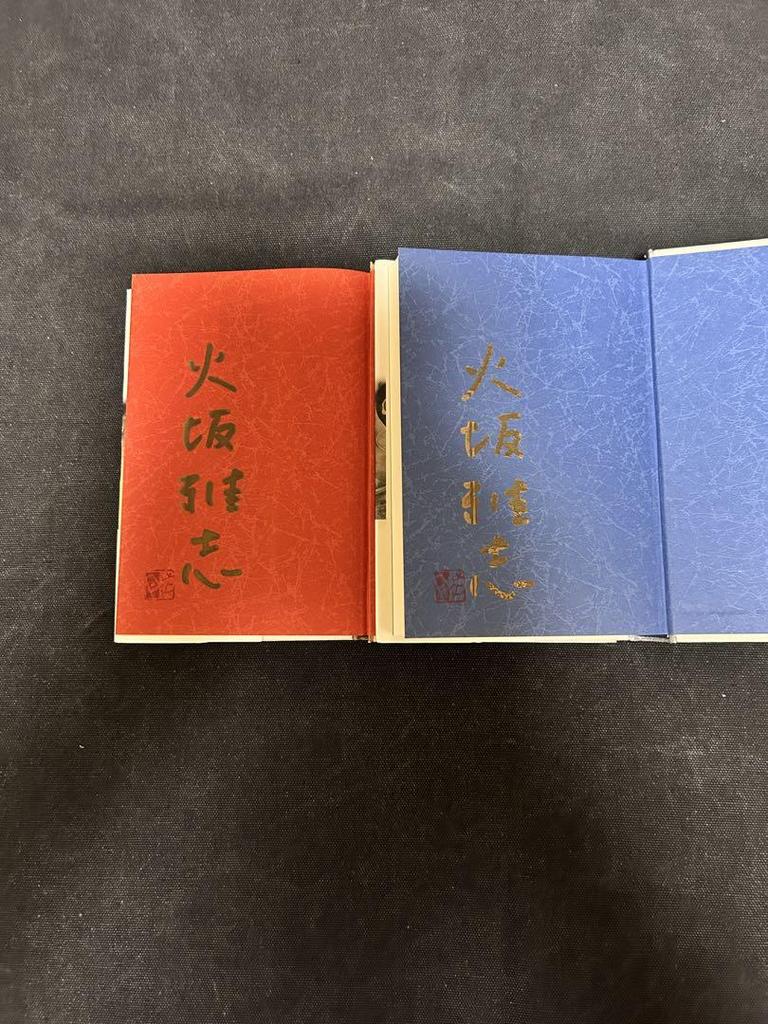 火坂雅志
火坂雅志